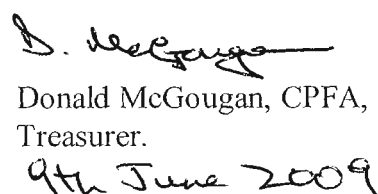 D. McGougan
Donald McGougan, CPFA,
Treasurer.
9th June 2009